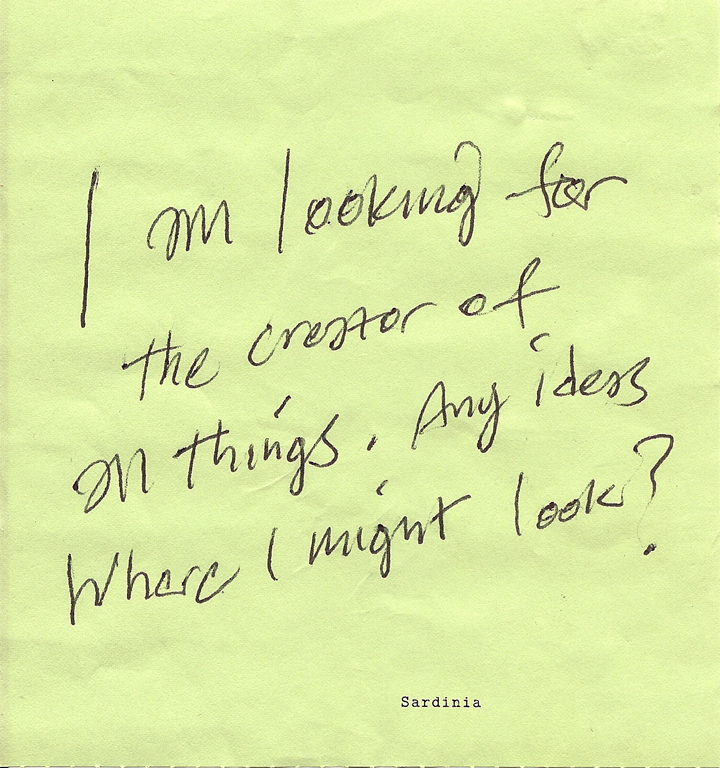 I am looking for
the creator of
all things. Any ideas
Where I might look?
Sardinia